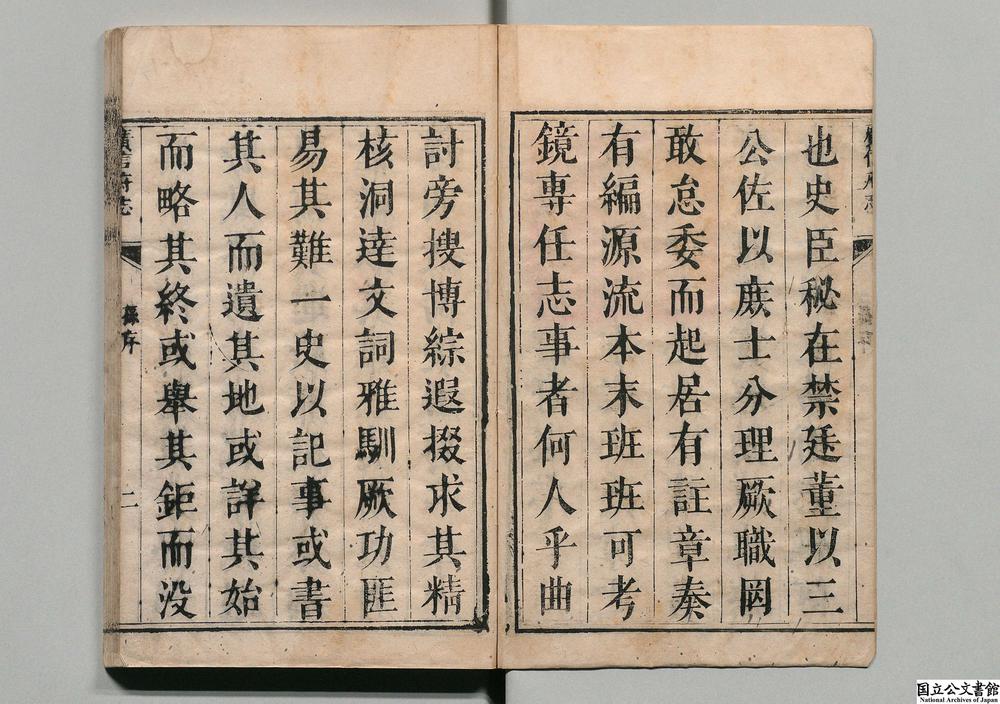 也史臣秘在禁廷董以三
公佐以庶士分理厥職罔
敢怠委而起居有註章奏
有編源流本末班班可考
鏡專任志事者何人乎曲
討旁搜博綜遐掇求其精
核洞達文詞雅馴厥功匪
易其難一史以記事或書
其人而遺其地或詳其始
而略其終或舉其鉅而没
廣信府志
序
二
国立公文書館
National Archives of Japan